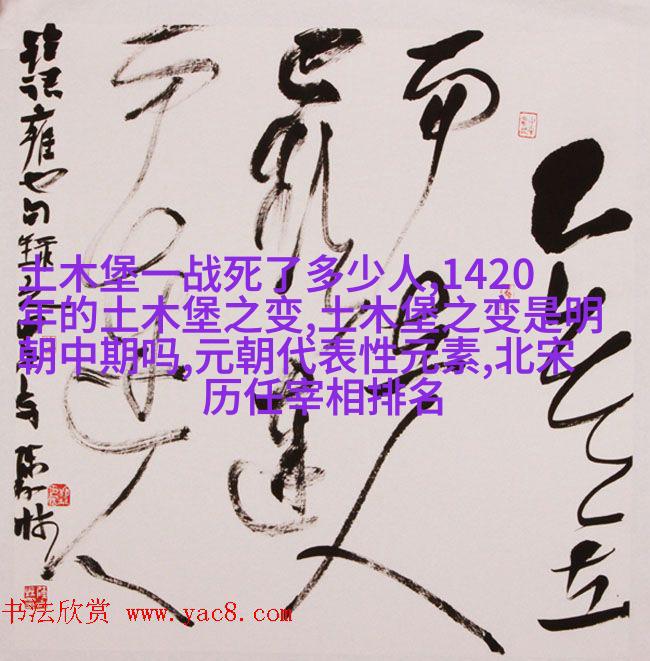 己欲立
而立人
己欲達
而達人
雍也句
土木堡一战死了多少人,1420
年的土木堡之变,土木堡之变是明
朝中期吗,元朝代表性元素,北宋
历任宰相排名
书法欣赏 www.yac8.com